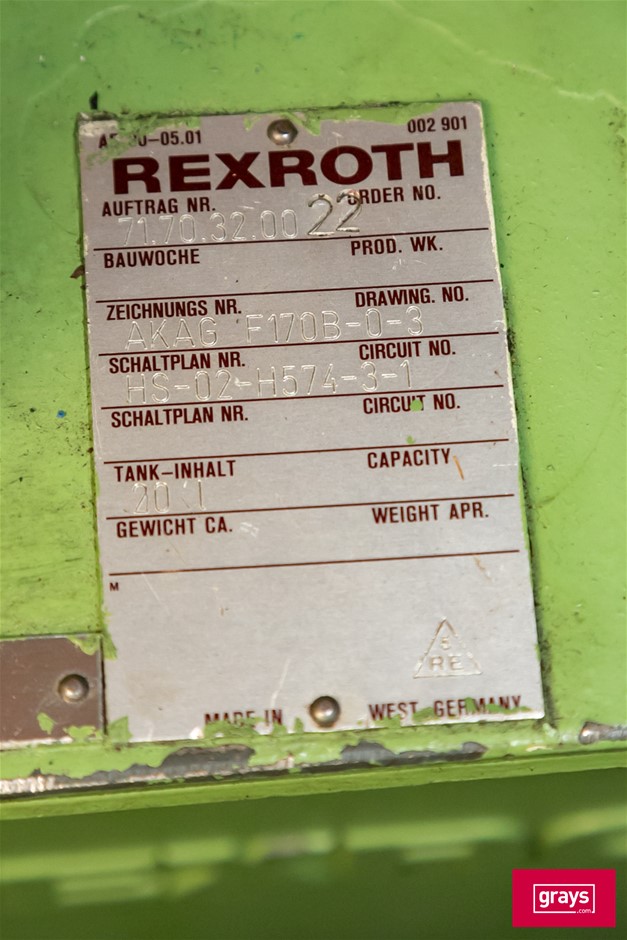 002 901
REXROTH
AUFTRAG NR. ORDER NO.
71.70.32.00 22
BAUWOCHE PROD. WK.
ZEICHNUNGS NR. DRAWING. NO.
AKAG F170B-0-3
SCHALTPLAN NR. CIRCUIT NO.
HS-02-H574-3-1
SCHALTPLAN NR. CIRCUIT NO.
TANK-INHALT CAPACITY
20 l
GEWICHT CA. WEIGHT APR.
M
5
RE
MADE IN WEST GERMANY
grays
.com